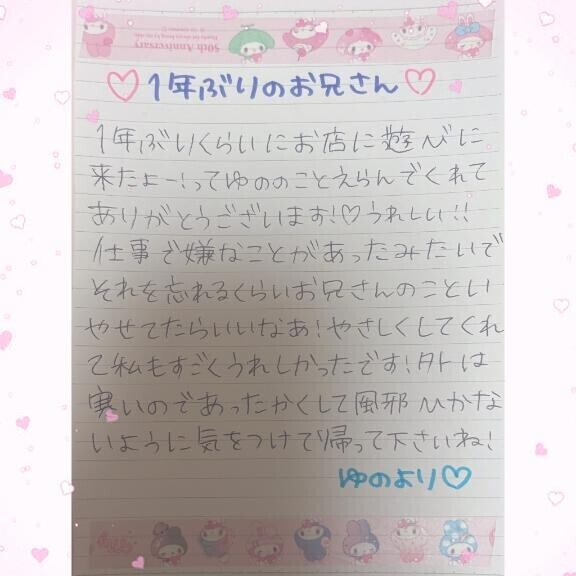 50th Anniversary
♡1年ぶりのお兄さん♡
1年ぶりくらいにお店に遊びに
来たよー!ってゆののことえらんでくれて
ありがとうございます!♡うれしい!!
仕事で嫌なことがあったみたいで
それを忘れるくらいお兄さんのことい
やせてたらいいなあ!やさしくしてくれ
て私もすごくうれしかったです!外は
寒いのであったかくして風邪ひかな
いように気をつけて帰って下さいね!
ゆのより♡